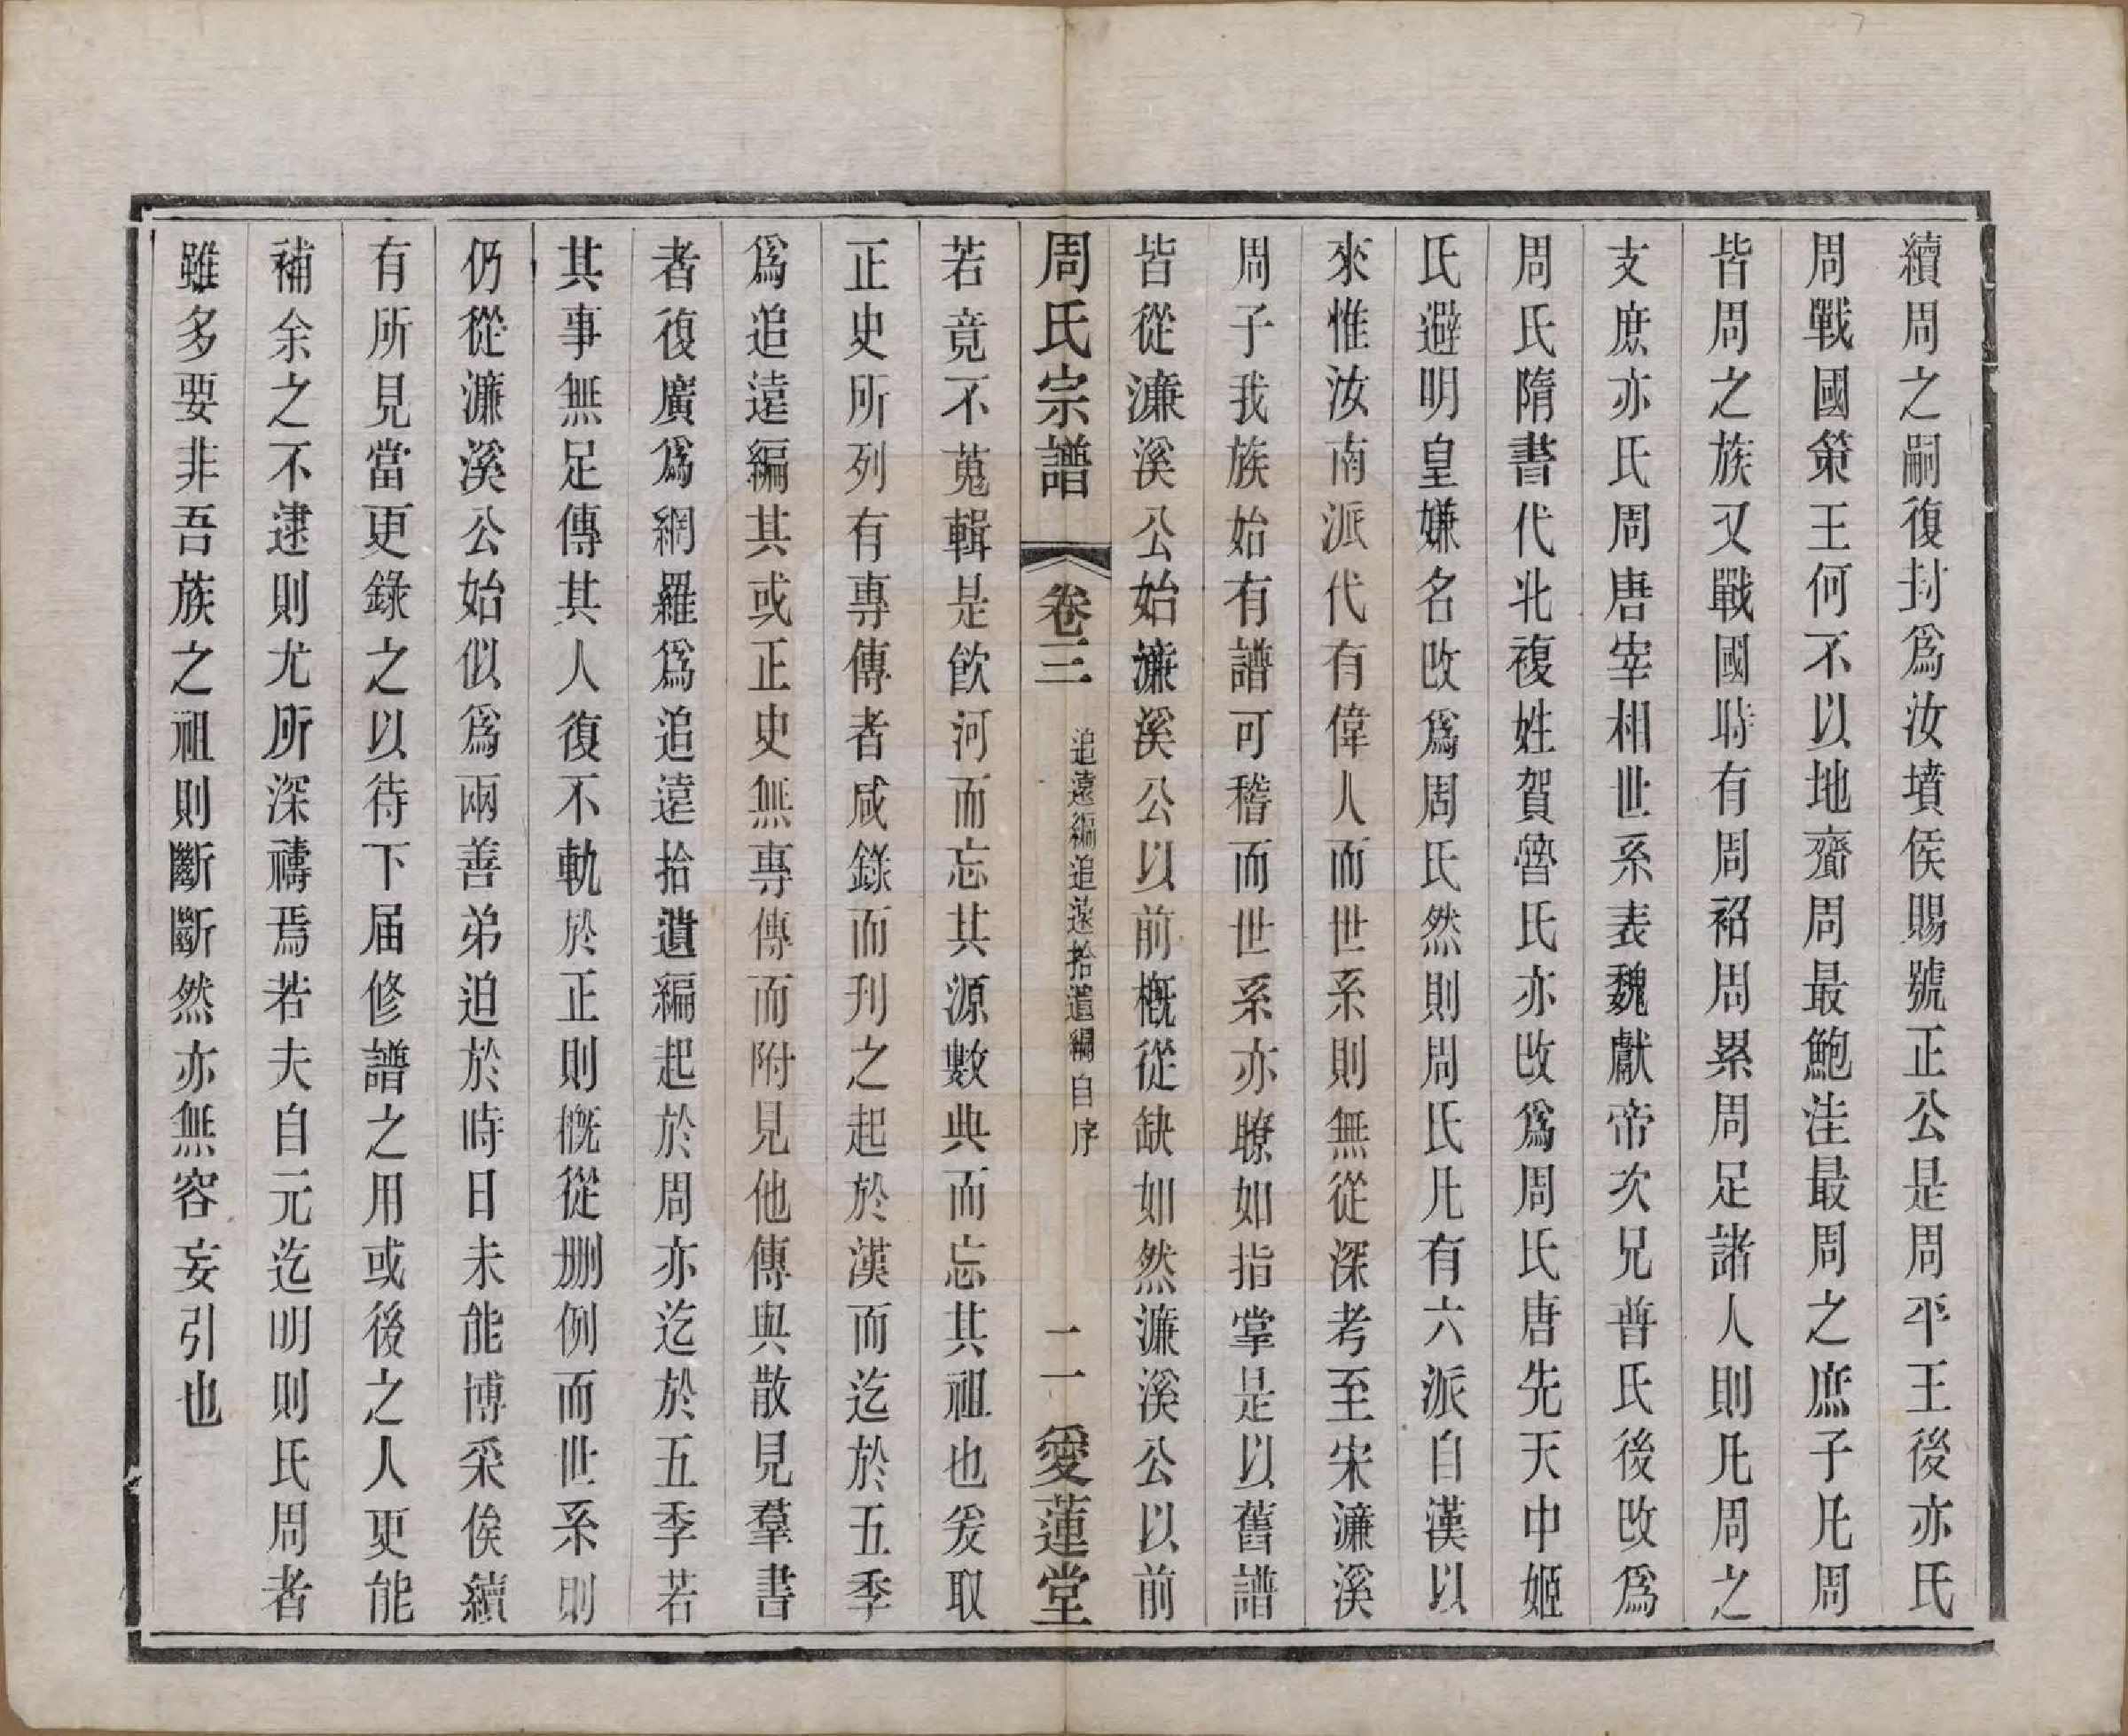 續周之嗣復封爲汝墳侯賜號正公是周平王後亦氏
周戰國策王何不以地齎周最鮑注最周之庶子凡周
皆周之族又戰國時有周祒周累周足諸人則凡周之
支庶亦氏周唐宰相世系表魏獻帝次兄普氏後改爲
周氏隋書代北複姓賀魯氏亦改爲周氏唐先天中姬
氏避明皇嫌名改爲周氏然則周氏凡有六派自漢以
來惟汝南派代有偉人而世系則無從深考至宋濂溪
周子我族始有譜可稽而世系亦瞭如指掌是以舊譜
皆從濂溪公始濂溪公以前槪從缺如然濂溪公以前
周氏宗譜 卷三 追遠編追遠拾遺編自序 二 愛蓮堂
若竟不蒐輯是飮河而忘其源數典而忘其祖也爰取
正史所列有專傳者咸錄而刋之起於漢而迄於五季
爲追遠編其或正史無專傳而附見他傳與散見羣書
者復廣爲網羅爲追遠拾遺編起於周亦迄於五季若
其事無足傳其人復不軌於正則槪從刪例而世系則
仍從濂溪公始似爲兩善弟迫於時日未能博采俟續
有所見當更錄之以待下届修譜之用或後之人更能
補余之不逮則尤所深禱焉若夫自元迄明則氏周者
雖多要非吾族之祖則斷斷然亦無容妄引也